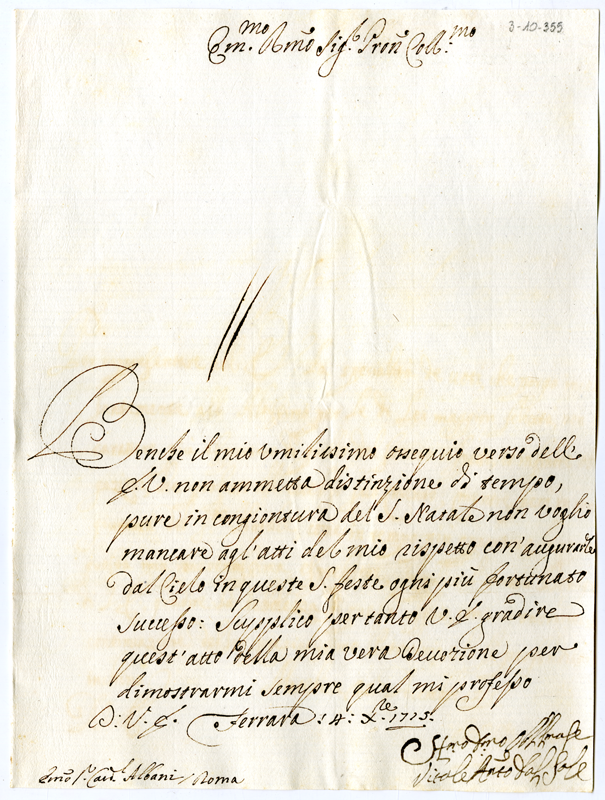 3-10-355
Em.mo Rmo Sig.r Pron Coll.mo
Benche il mio umilissimo ossequio verso dell'
E. V. non ammetta distinzione di tempo,
pure in congiontura del S. Natale non voglio
mancare agl'atti del mio rispetto con'augurarle
dal Cielo in queste S. feste ogni più fortunato
successo: Supplico pertanto V. E. gradire
quest'atto della mia vera Devozione per
dimostrarmi sempre qual mi professo
D: V. E. Ferrara: 14: X.re 1715:
Vitale Ant.o dal Sole
Emo S.r Card.l Albani / Roma